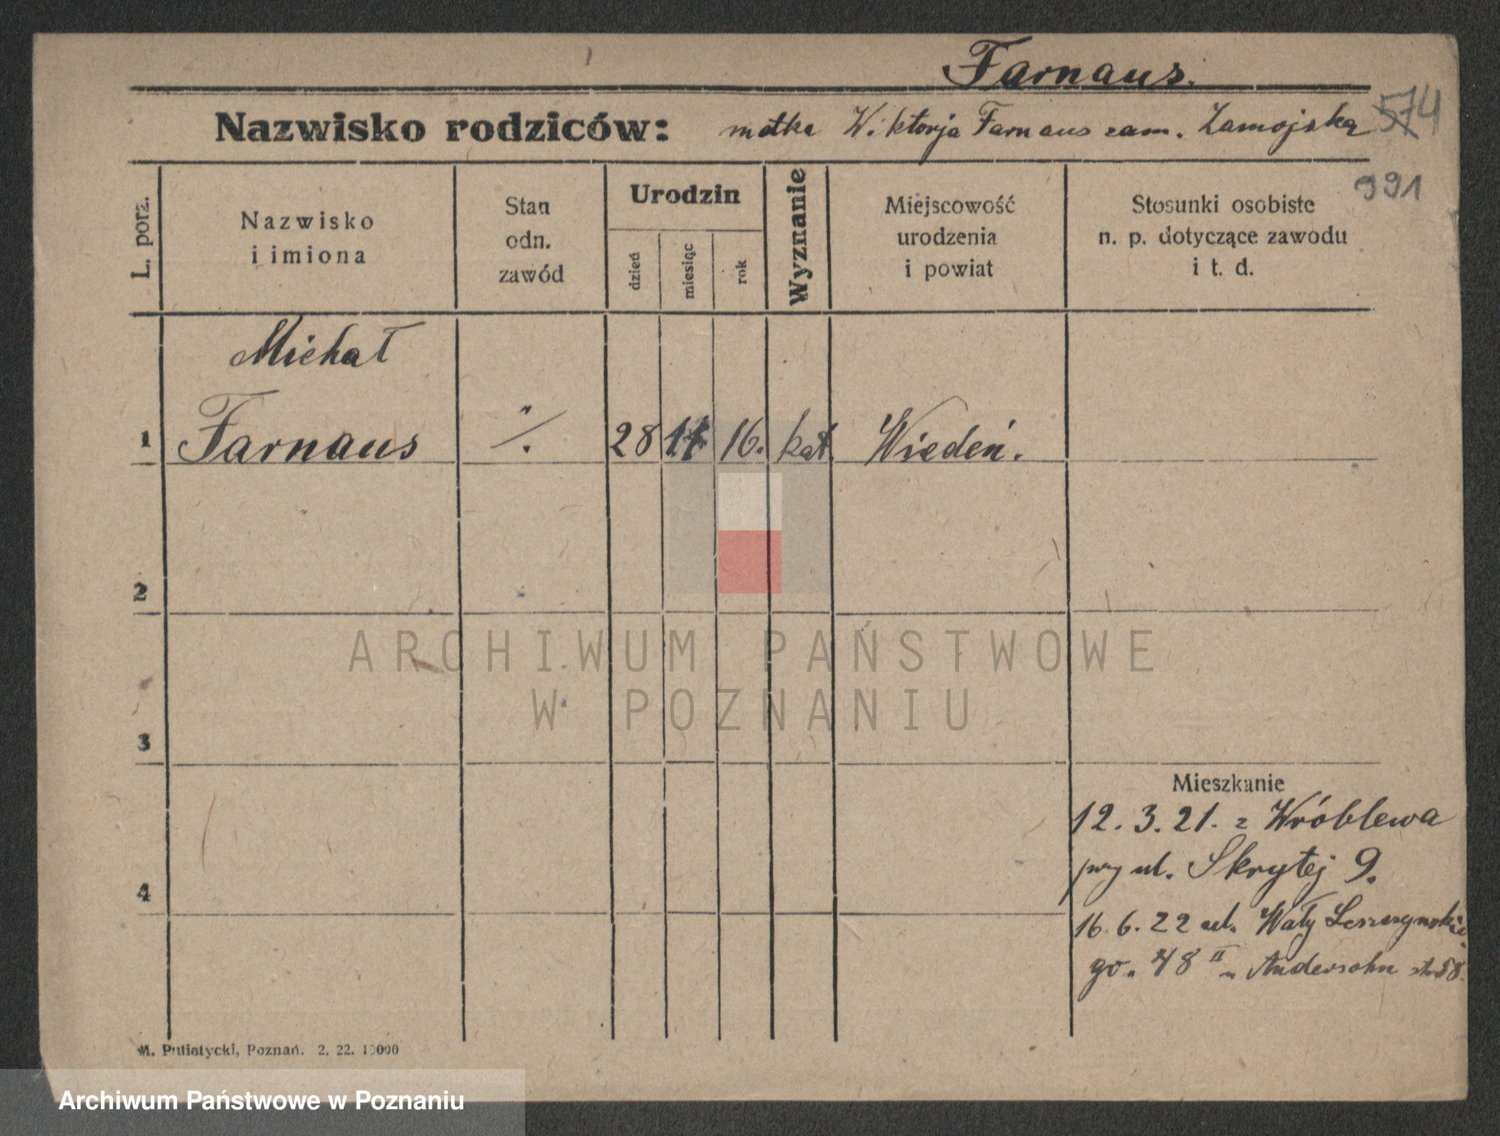 Farnaus.
Nazwisko rodziców: matka Wiktorja Farnaus zam. Zamojska
574
991
L. porz.
Nazwisko
i imiona
Stan
odn.
zawód
Urodzin
dzień
miesiąc
rok
Wyznanie
Miejscowość
urodzenia
i powiat
Stosunki osobiste
n. p. dotyczące zawodu
i t. d.
Michał
1 Farnaus 28 11 16. kat. Wiedeń.
2
ARCHIWUM PAŃSTWOWE
W POZNANIU
3
Mieszkanie
12. 3. 21. z Wróblewa
przy ul. Skrytej 9.
4
16. 6. 22 ul. Wały Leszczyńskie
go. 48 II Andersohn 58.
M. Putiatycki, Poznań. 2. 22. 10000
Archiwum Państwowe w Poznaniu